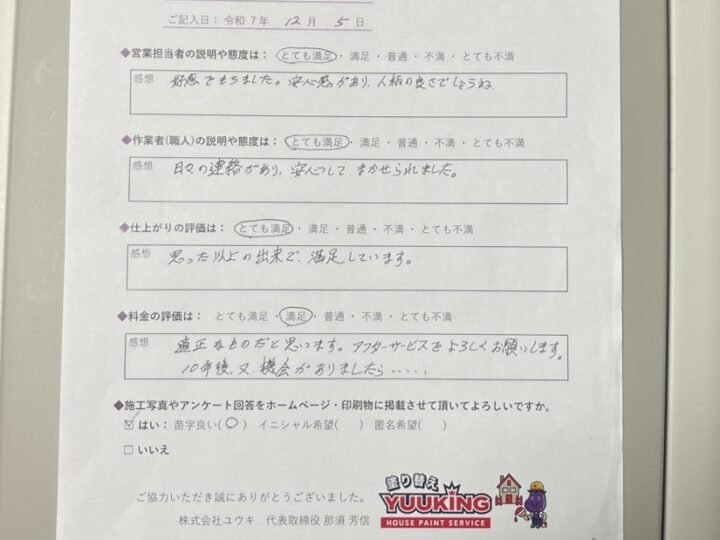 ご記入日：令和 7年 12月 5日
◆営業担当者の説明や態度は： とても満足・満足・普通・不満・とても不満
感想 好感をもちました。安心感があり、人柄の良さでしょうね
◆作業者(職人)の説明や態度は： とても満足・満足・普通・不満・とても不満
感想 日々の連絡があり、安心してまかせられました。
◆仕上がりの評価は： とても満足・満足・普通・不満・とても不満
感想 思った以上の出来で、満足しています。
◆料金の評価は： とても満足・満足・普通・不満・とても不満
感想 適正なものだと思います。アフターサービスをよろしくお願いします。
10年後、又、機会がありましたら.....
◆施工写真やアンケート回答をホームページ・印刷物に掲載させて頂いてよろしいですか。
☑ はい： 苗字良い(○) イニシャル希望( ) 匿名希望( )
□ いいえ
ご協力いただき誠にありがとうございました。
株式会社ユウキ 代表取締役 那須 芳信
塗り替え
YUUKING
HOUSE PAINT SERVICE